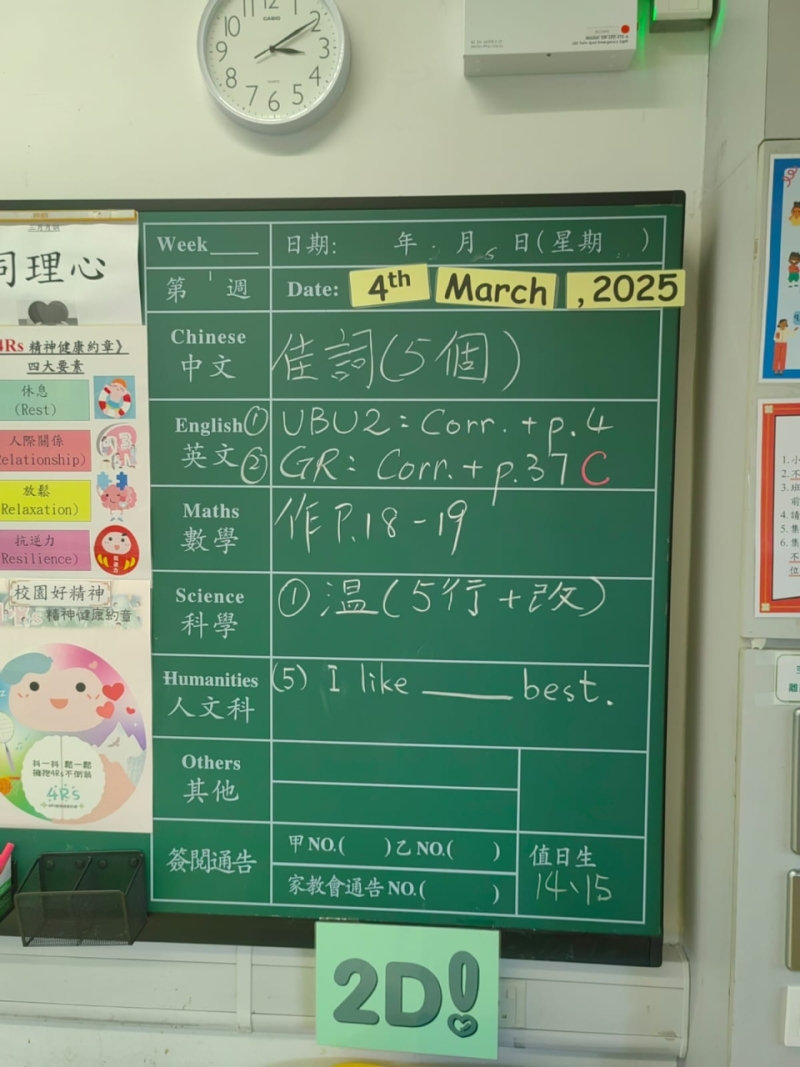 12
CASIO
10
9
8
7
6
5
4
3
2
QUARTZ
同理心
4Rs 精神健康約章》
四大要素
休息
(Rest)
人際關係
Relationship)
放鬆
Relaxation)
抗逆力
Resilience)
校園好精神
精神健康約章
抖一抖 鬆一鬆
擁抱4Rs不倒翁
4Rs
Week____ 日期: 年 月 日(星期 )
第 週 Date: 4th March , 2025
Chinese
中文
佳詞(5個)
English
英文
① UBU2: Corr. + p.4
② GR: Corr. + p.37 C
Maths
數學
作P.18-19
Science
科學
① 溫(5行+改)
Humanities
人文科
(5) I like ____ best.
Others
其他
簽閱通告
甲NO.( )乙NO.( )
家教會通告NO.( )
值日生
14、15
2D!